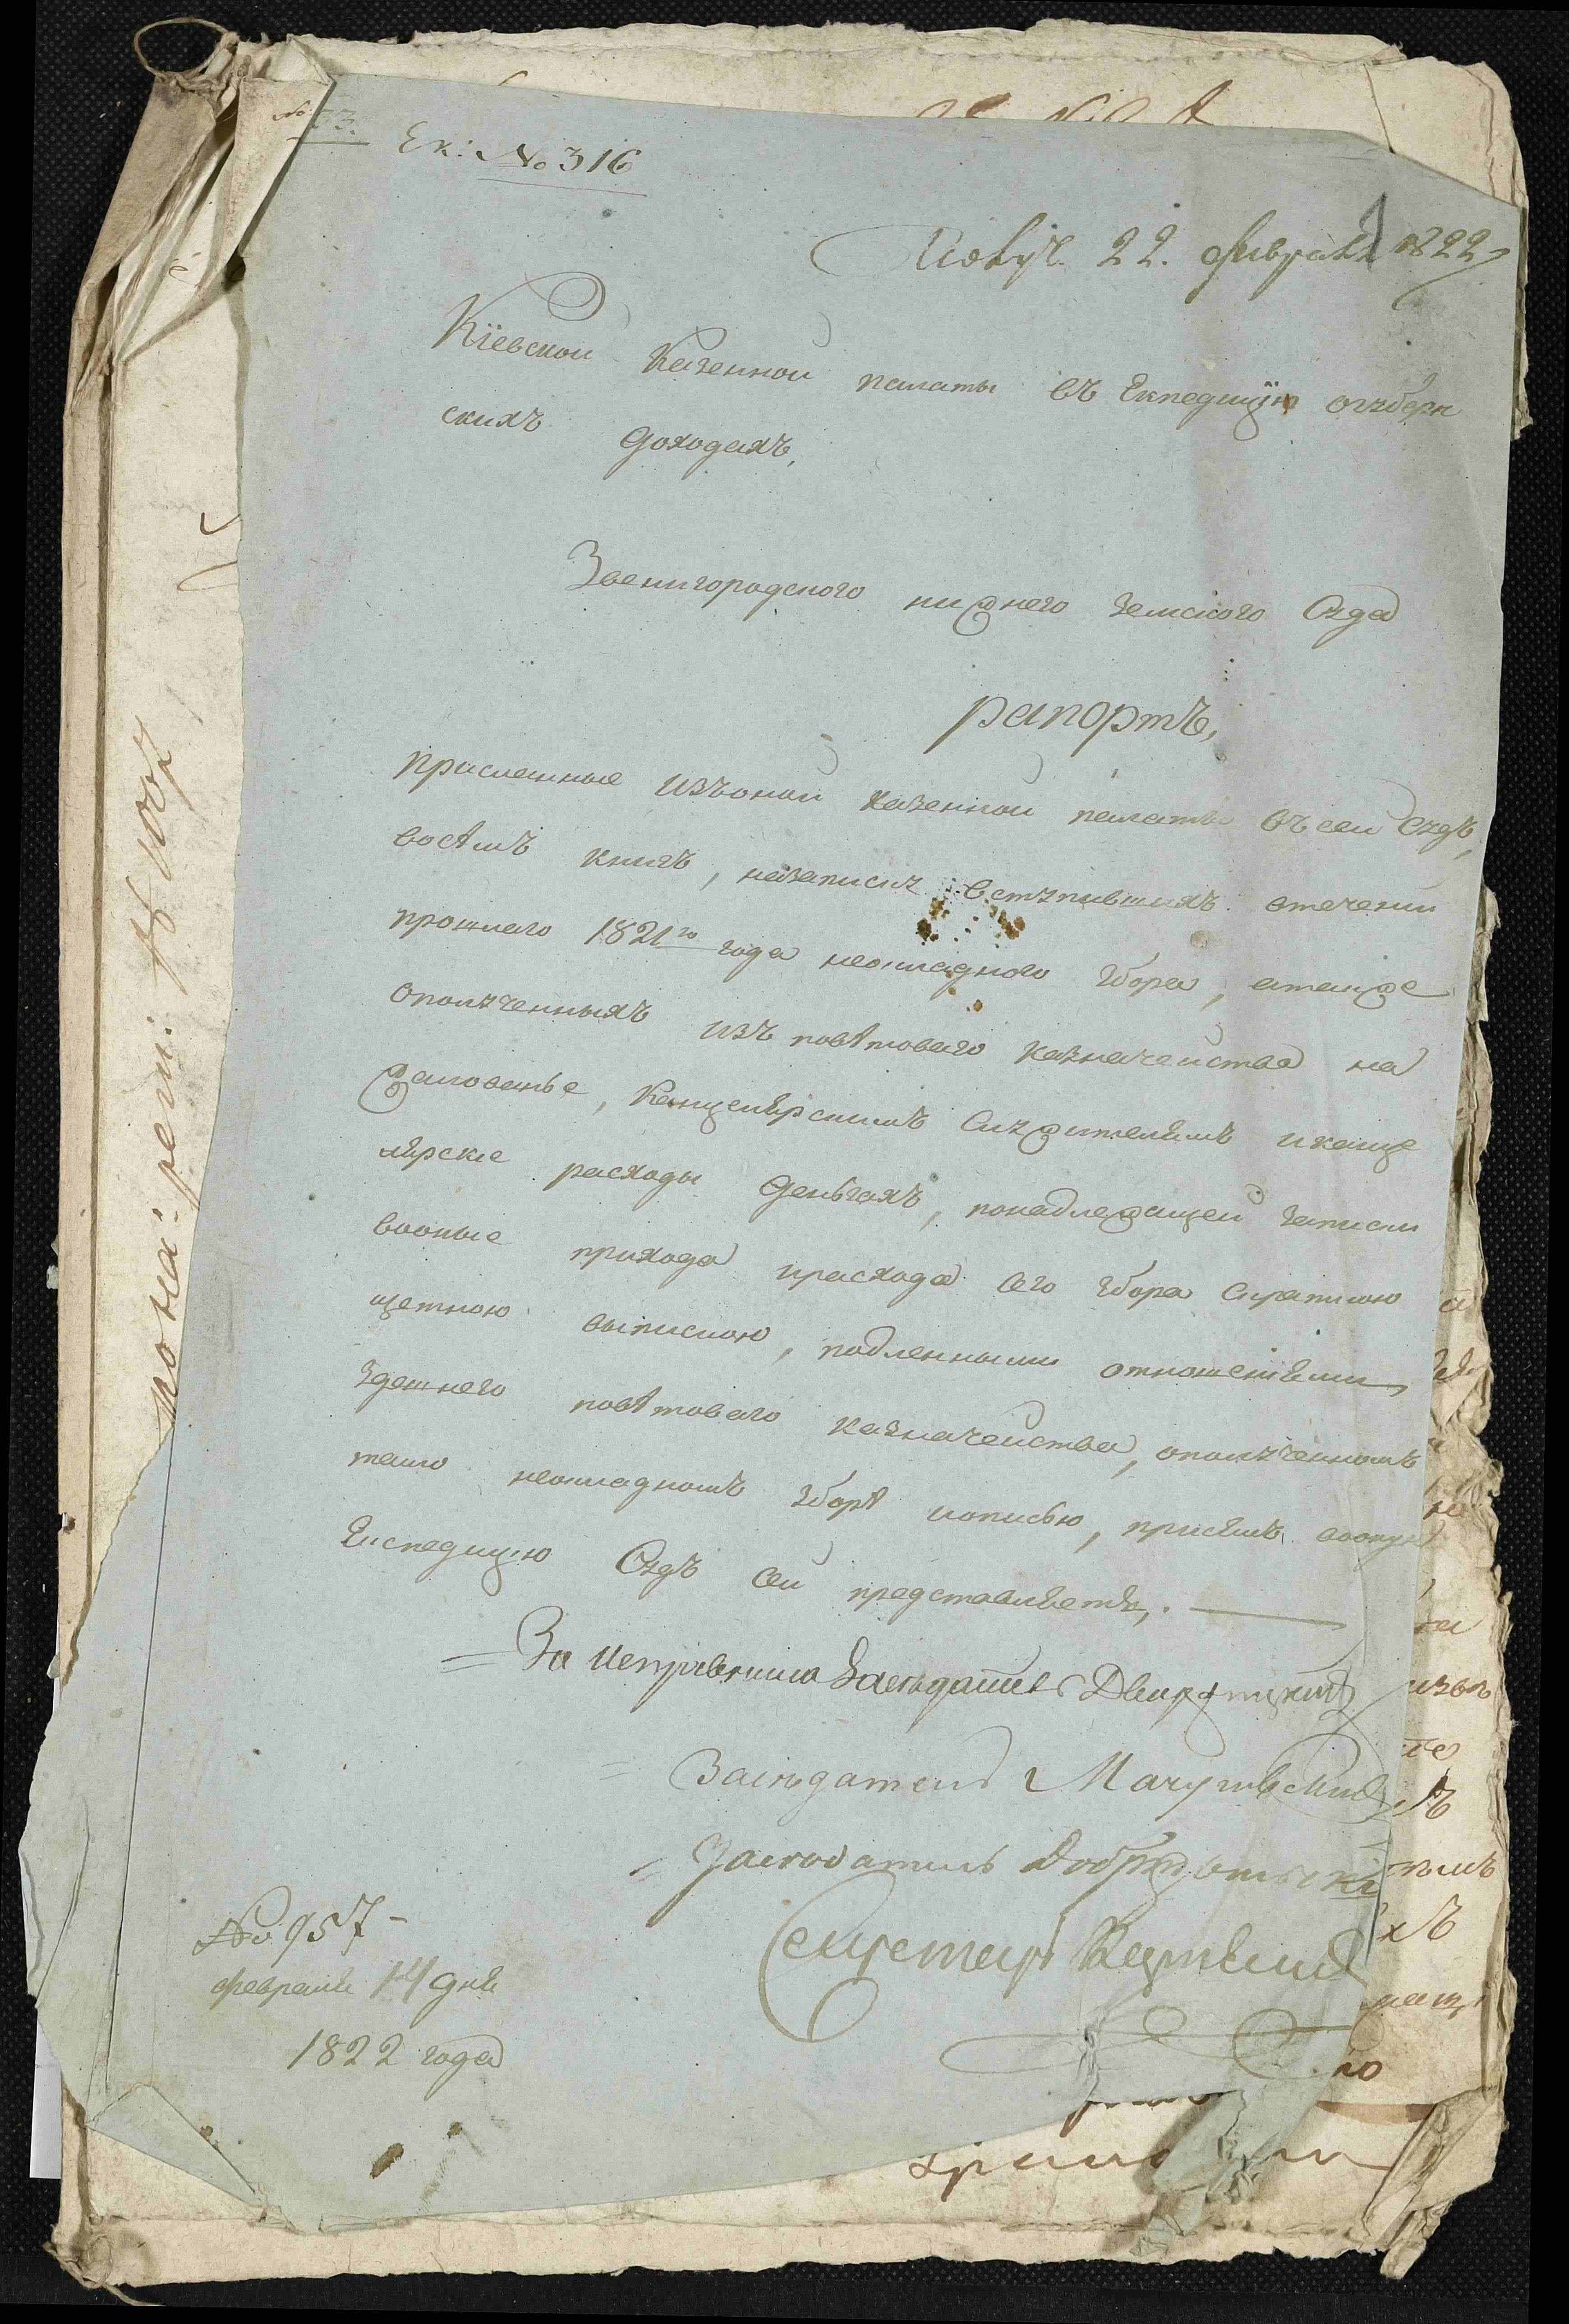 № 33.
Ек: № 316
Получ. 22. февраля 1822
Кіевской Казенной палаты въ Екпедицїю огуберн
скихъ доходахъ,
Звенигородского нижнего земского Суда
рапортъ,
присланные изъоной казенной палаты въ сей Судъ,
восемъ книгъ, назаписку вступившихъ втечении
прошлаго 1821го года неокладного збора, атакже
ополученныхъ изъ повѣтоваго казначейства на
жалованье, Канцелярскимъ Служителямъ иканце
лярские расходы деньгахъ, понадлежащей записки
вооные прихода ирасхода сего збора скраткою
щетною выпискою, подленными отношениями
здешнего повѣтоваго казначейства, ополученномъ
тамо неокладномъ зборѣ иописью, присемъ вооную
Експедицию Судъ сей представляетъ,.
За Исправника Засѣдатель
Засѣдатель
Засѣдатель
Секретарь
№ 957
февраля 14 дня
1822 года